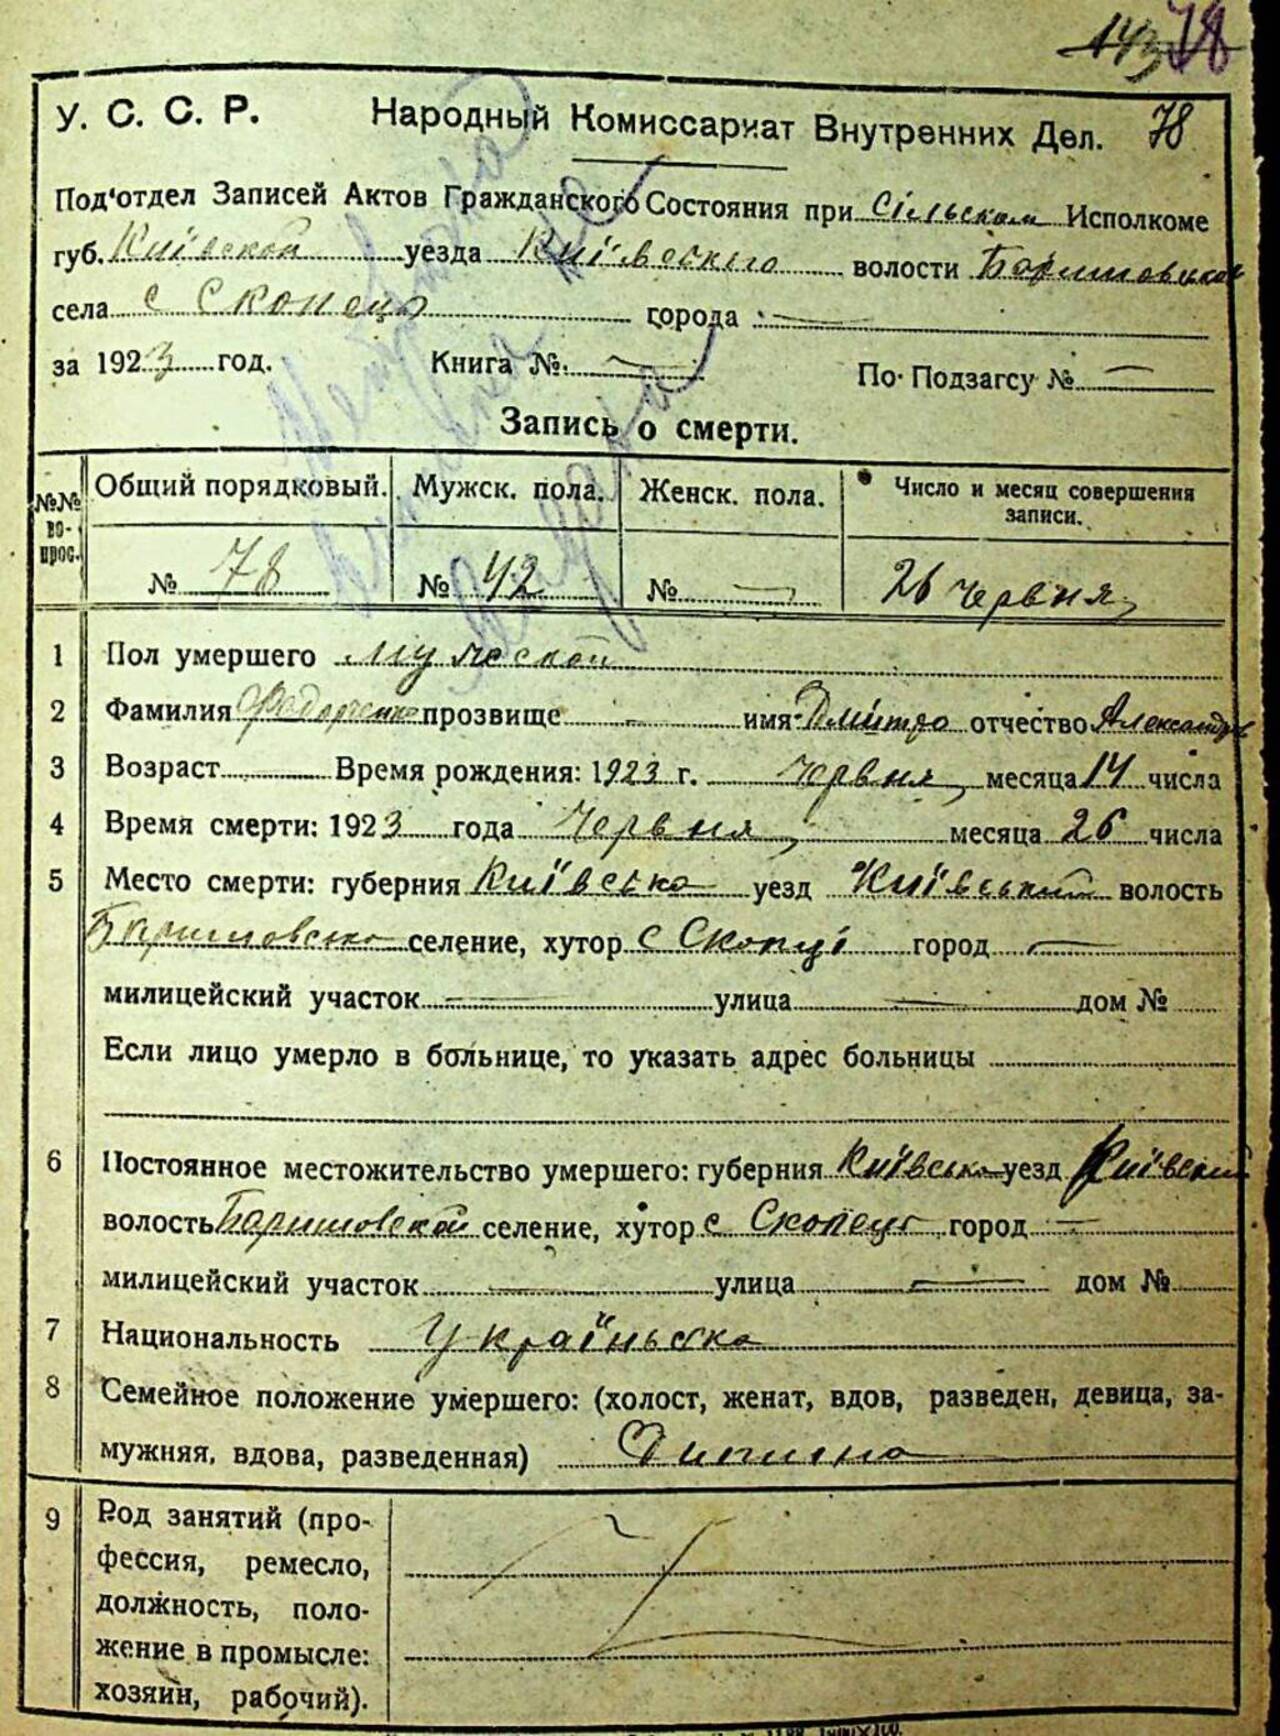 143 78
У. С. С. Р. Народный Комиссариат Внутренних Дел. 78
Под'отдел Записей Актов Гражданского Состояния при Сільском Исполкоме
губ. Київской уезда Київського волости Баришовской
села с Скопець города —
за 1923 год. Книга №. — По Подзагсу № —
Запись о смерти.
№№ вопрос. Общий порядковый. Мужск. пола. Женск. пола. Число и месяц совершения
записи.
№ 78 № 42 № — 26 Червня
1 Пол умершего мужеской
2 Фамилия Федорченко прозвище — имя Дмитро отчество Александров
3 Возраст Время рождения: 1923 г. Червня месяца 14 числа
4 Время смерти: 1923 года Червня месяца 26 числа
5 Место смерти: губерния Київська уезд Київський волость
Баришовська селение, хутор с Скопці город —
милицейский участок — улица — дом №
Если лицо умерло в больнице, то указать адрес больницы
6 Постоянное местожительство умершего: губерния Київська уезд Київский
волость Баришовской селение, хутор с Скопець город —
милицейский участок — улица — дом №
7 Национальность Українська
8 Семейное положение умершего: (холост, женат, вдов, разведен, девица, за-
мужняя, вдова, разведенная) Дитина
9 Род занятий (про-
фессия, ремесло,
должность, поло-
жение в промысле:
хозяин, рабочий).